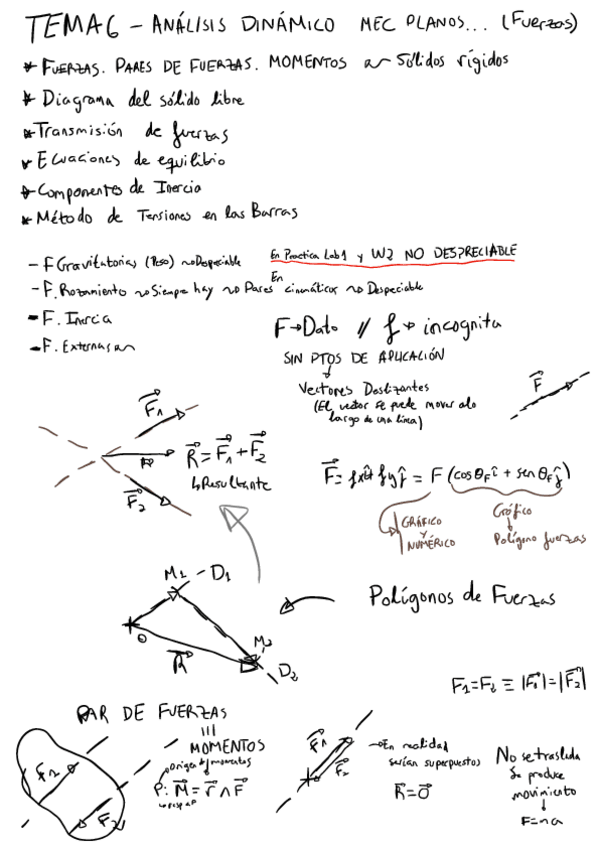 TEMA 6 - ANÁLISIS DINÁMICO MEC PLANOS... (Fuerzas)
* FUERZAS. PARES DE FUERZAS. MOMENTOS a Sólidos rígidos
* Diagrama del sólido libre
* Transmisión de fuerzas
* Ecuaciones de equilibrio
* Componentes de Inercia
* Método de Tensiones en las Barras
- F Gravitatorias (Peso) Despeciable
En Practica Lab1 y W2 NO DESPRECIABLE
En
- F. Rozamiento Siempre hay Pares cinemáticos Despeciable
- F. Inercia
- F. Externas
F→Dato // f→ incognita
SIN PTOS DE APLICACIÓN
Vectores Deslizantes
(El vector se puede mover a lo
largo de una línea)
F
F1
R
F2
R = F1 + F2
↳Resultante
F = fx î + fy ĵ = F (cos θF î + sen θF ĵ)
GRÁFICO
Y
NUMÉRICO
Gráfico
↓
Polígono fuerzas
M1 - D1
O
R
M2
D2
Polígonos de Fuerzas
F1 = F2 ≡ |F1| = |F2|
PAR DE FUERZAS
MOMENTOS
Origen momentos
P: M = r ∧ F
F1
F2
F1
F2
→En realidad
serían superpuestos
R = 0
No se traslada
Se produce
movimiento
↓